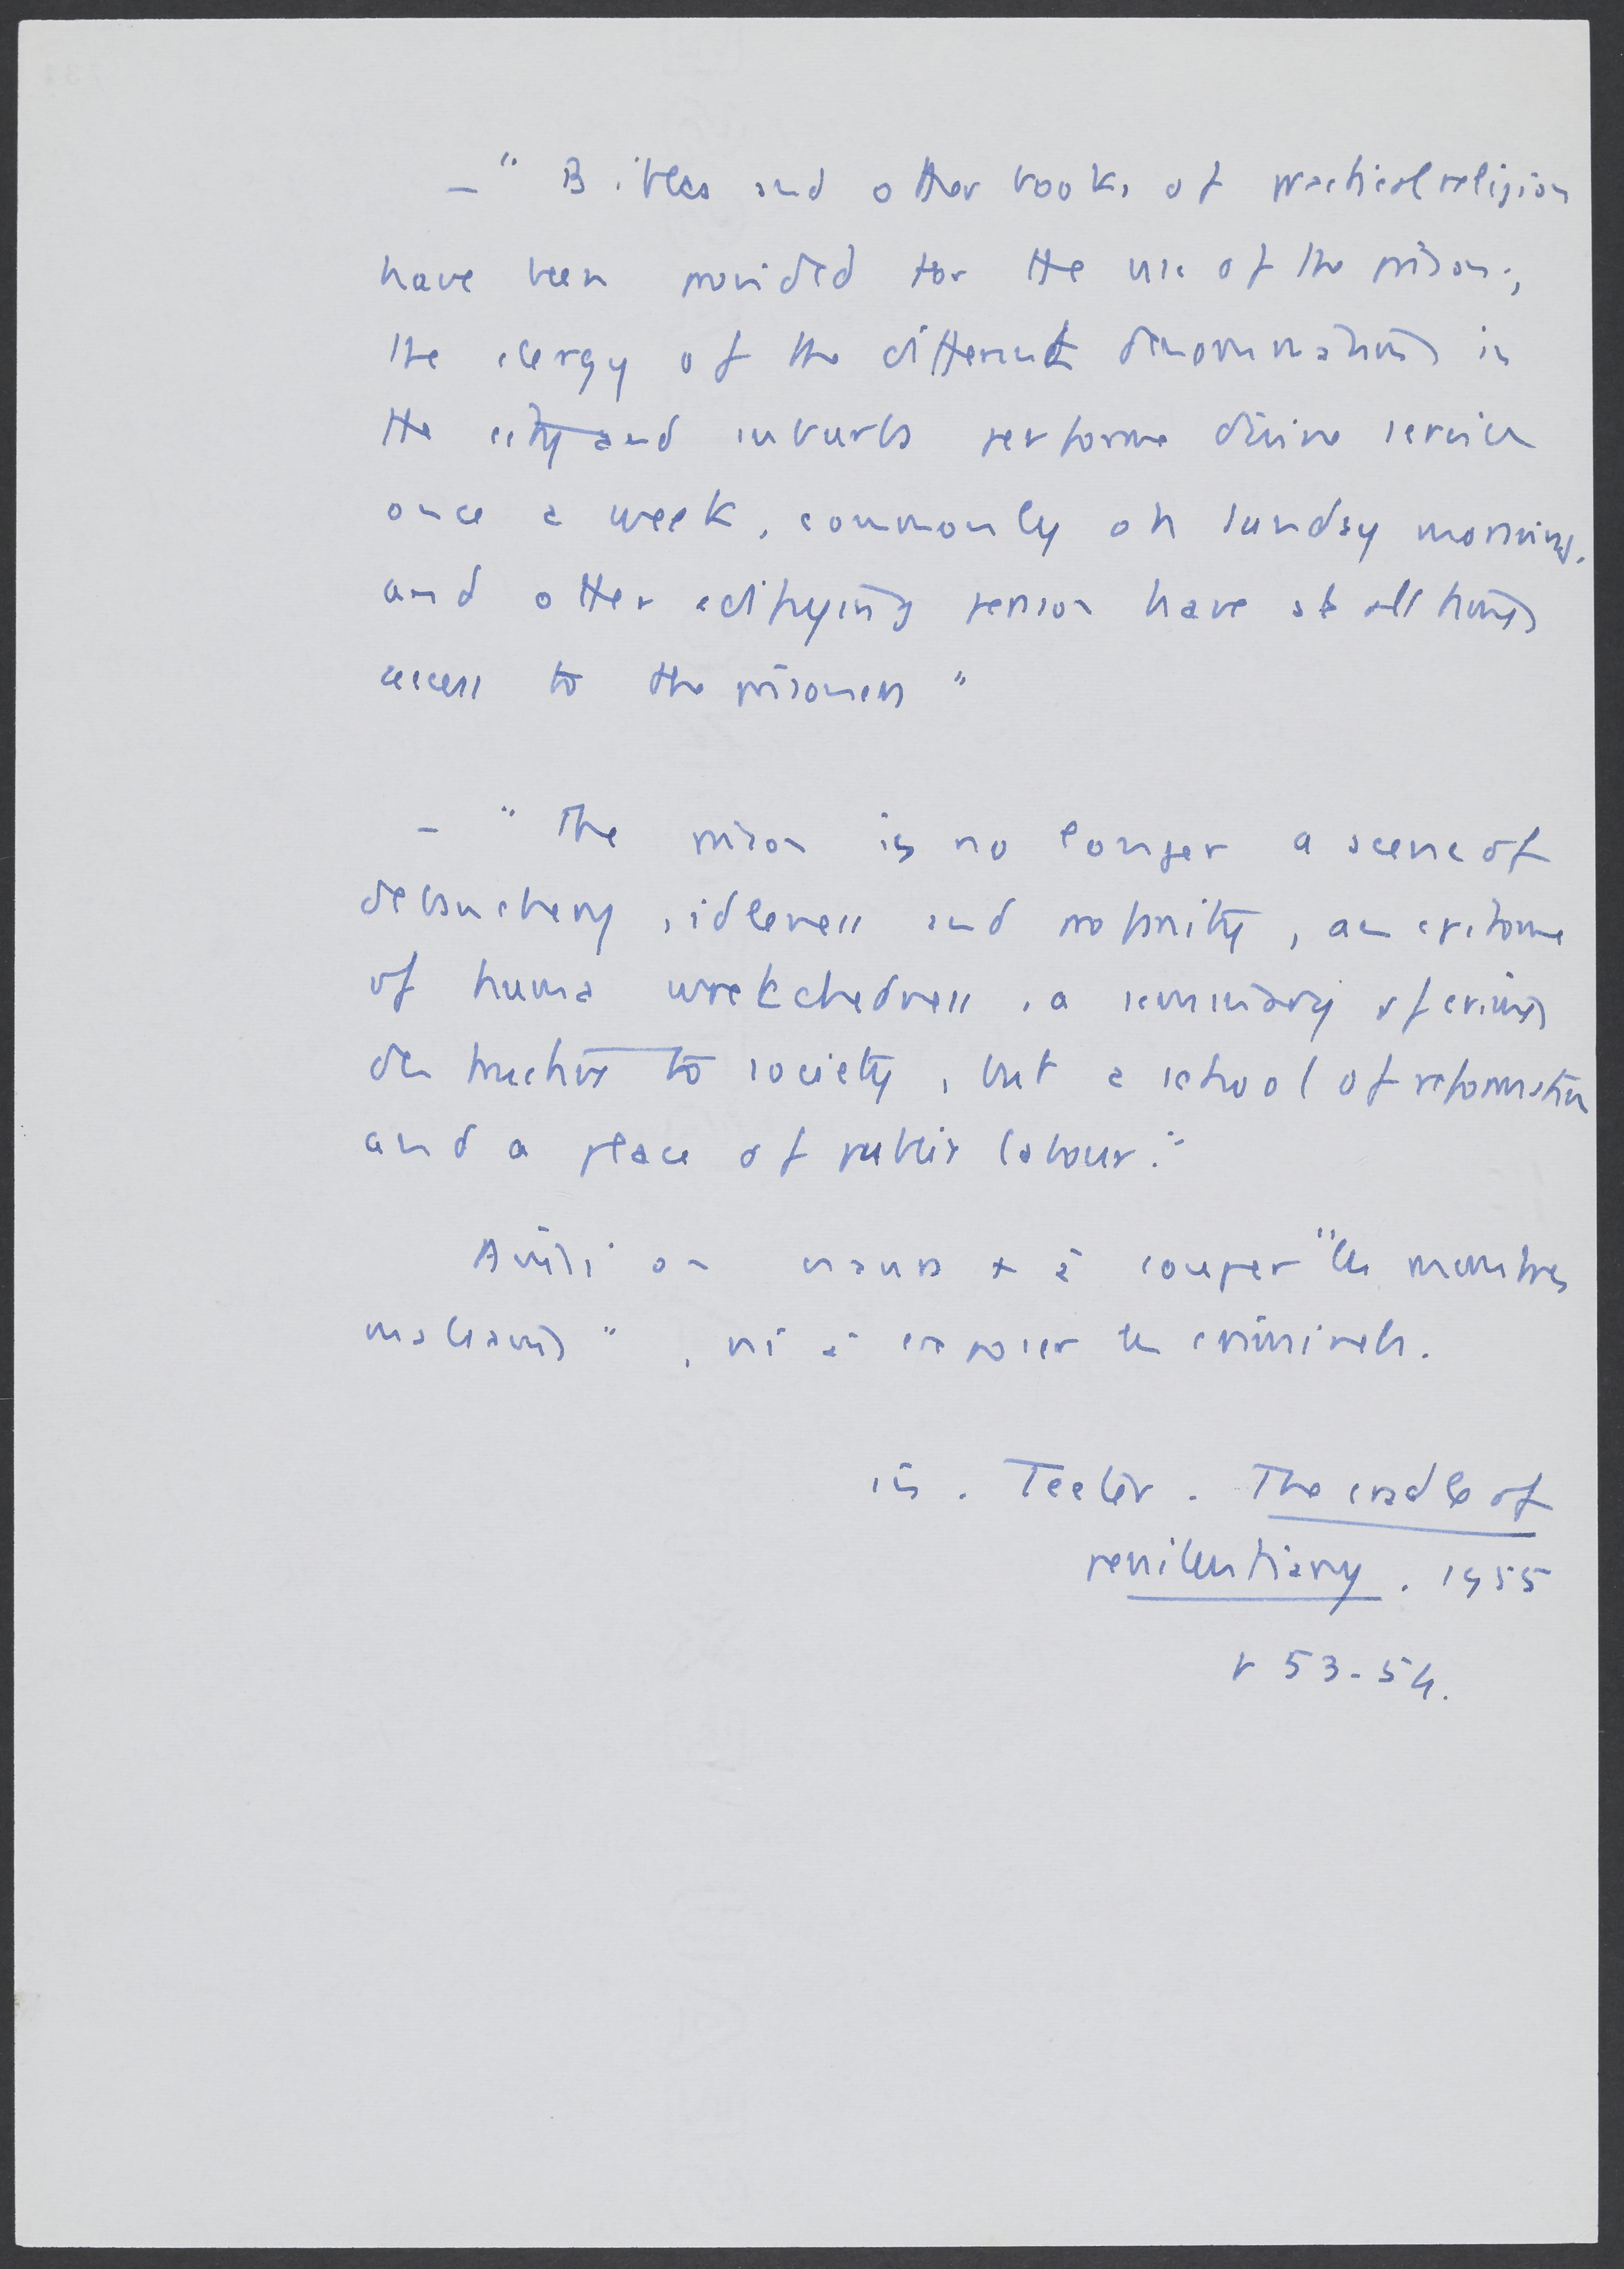 – " Bibles and other books of practical religion
have been provided for the use of the prison ;
the clergy of the different denominations in
the city and suburbs performe divine service
once a week, commonly on sunday morning,
and other edifying person have at all times
access to the prisoners "
– " The prison is no longer a scene of
debauchery, idleness and profanity, an epitome
of huma wretchedness, a seminary of crimes
destructive to society, but a school of reformation
and a place of public labour. "
Ainsi on à couper " les membres
malsains ", ni à exposer les criminels.
in. Teeter. The cradle of
penitentiary. 1955
p 53-54.